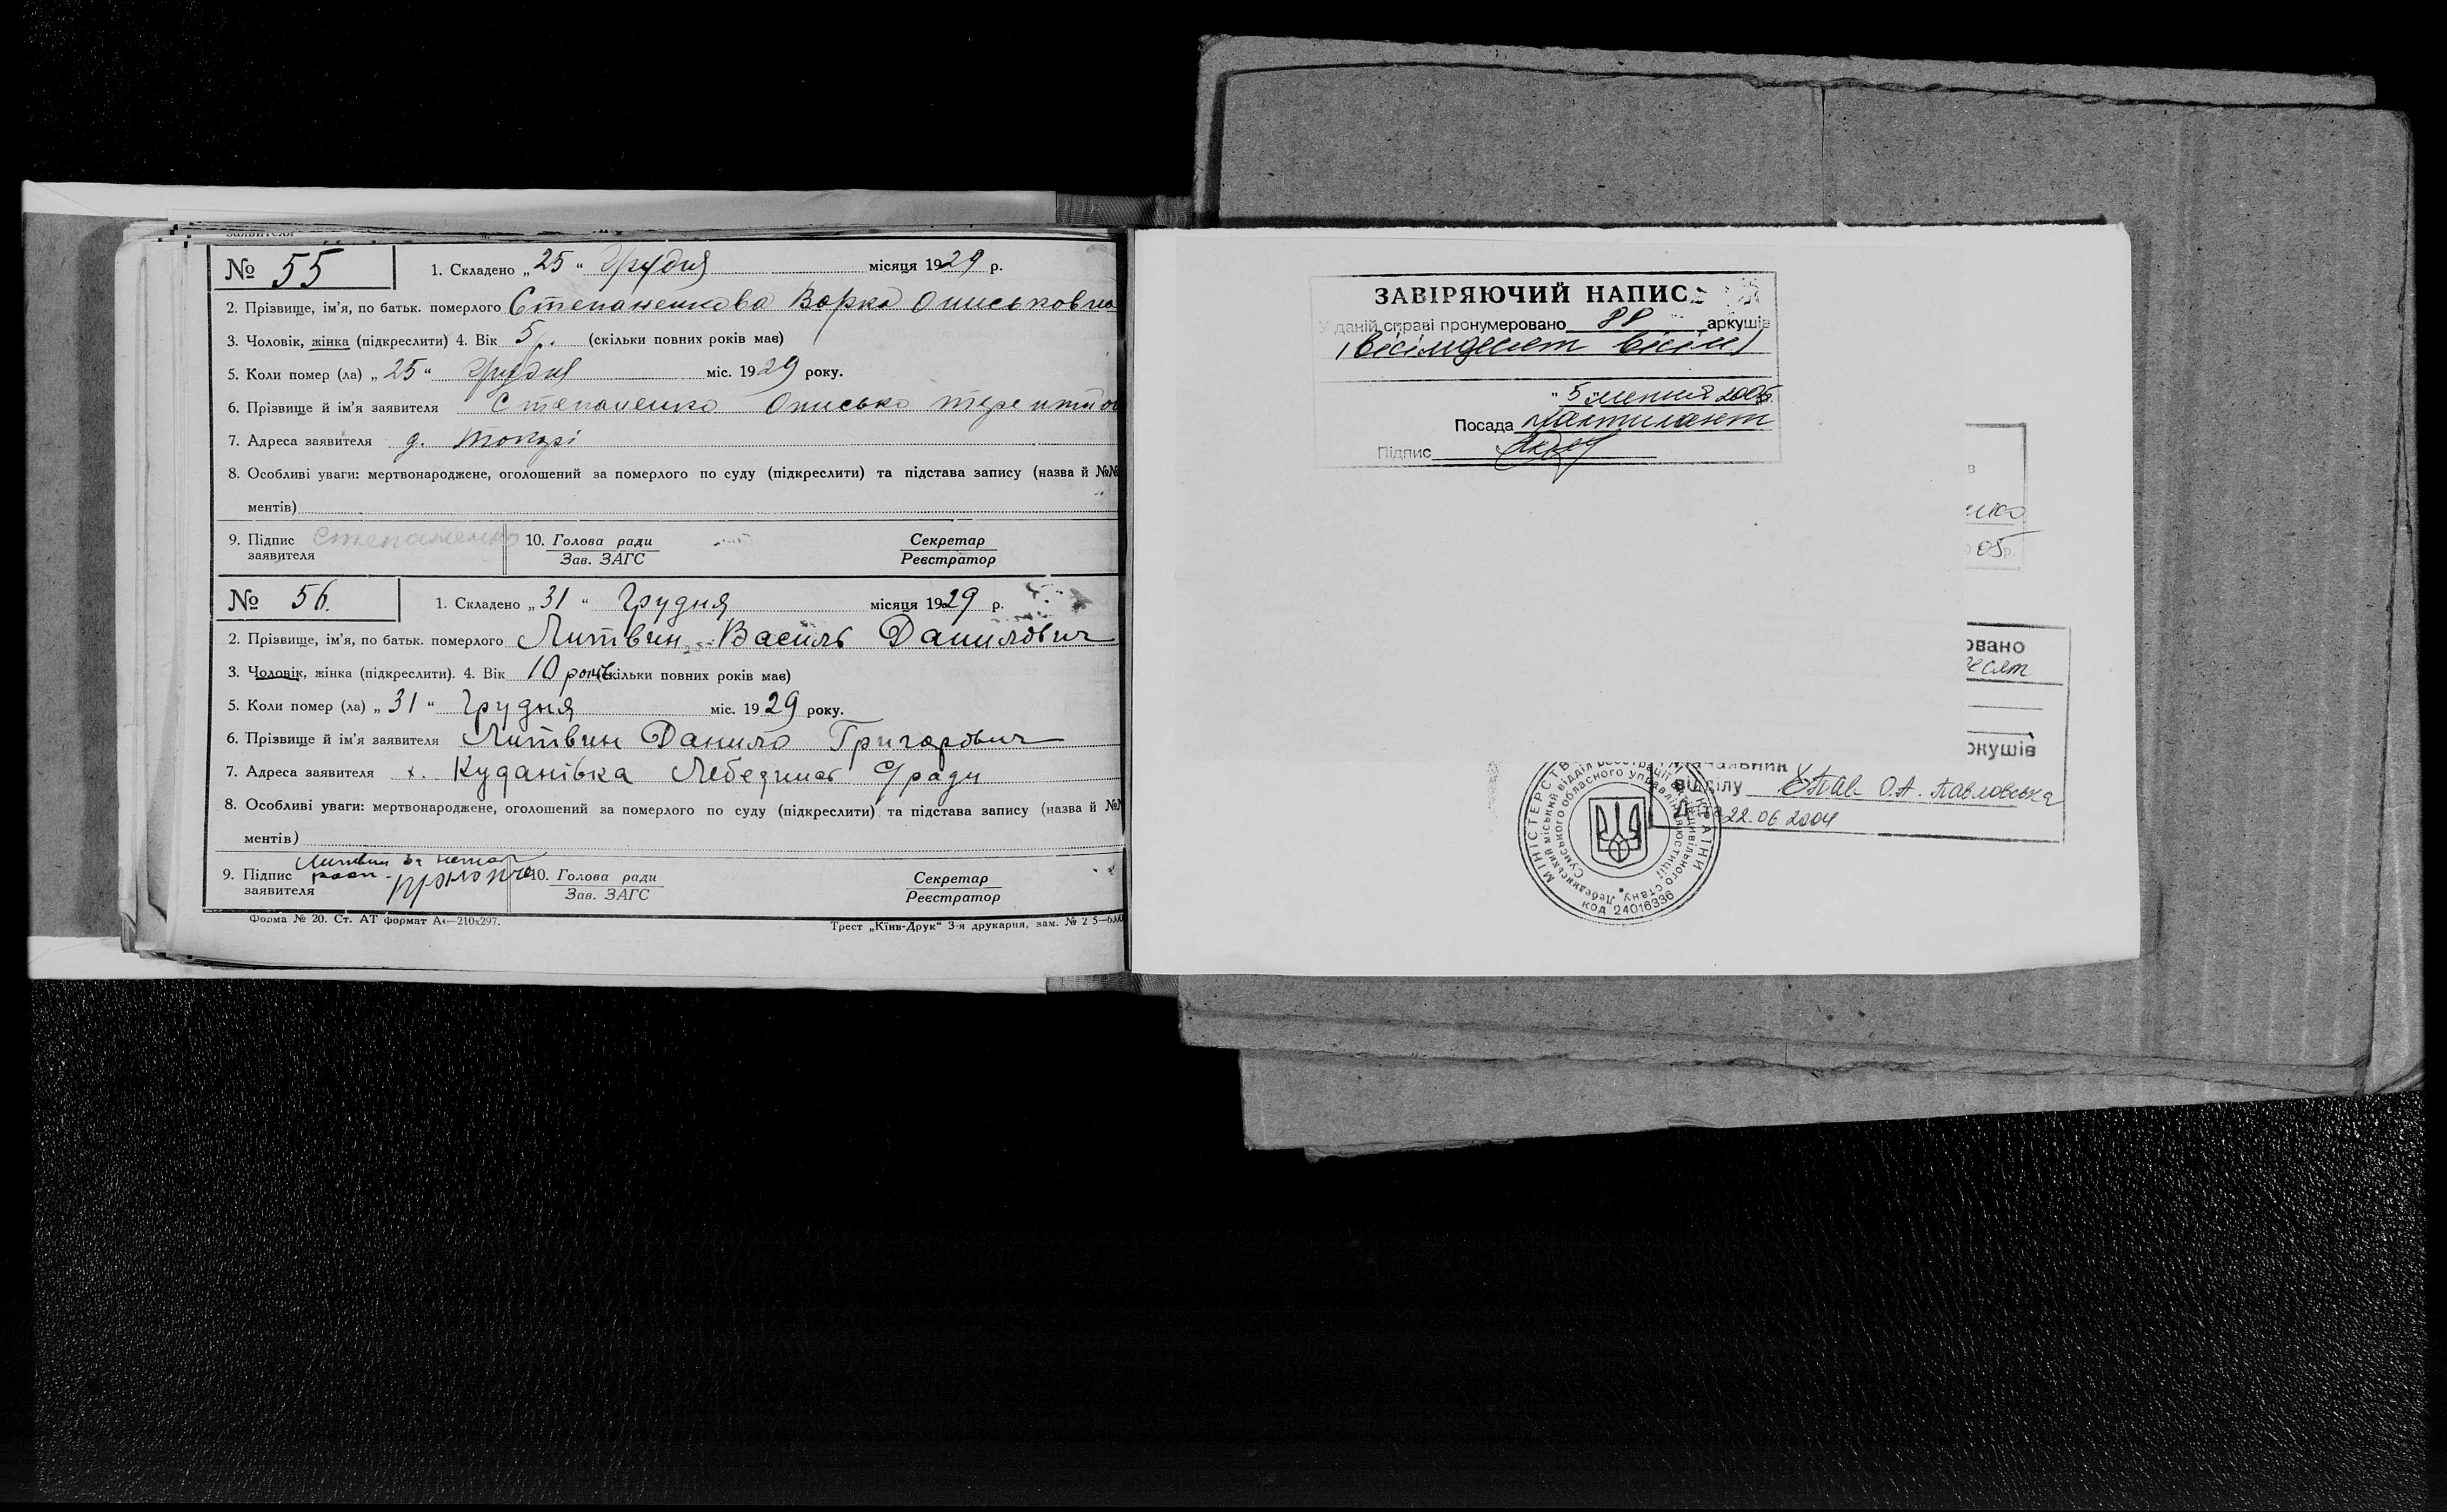 № 55 1. Складено „25“ Грудня місяця 1929 р.
2. Прізвище, ім’я, по батьк. померлого Степаненкова ВаркаОписьковна
3. Чоловік, жінка (підкреслити) 4. Вік 5 р. (скільки повних років має)
5. Коли помер (ла) „25“ Грудня міс. 1929 року.
6. Прізвище й ім’я заявителя Степаненко Описько
7. Адреса заявителя д. Токарі
8. Особливі уваги: мертвонароджене, оголошений за померлого по суду (підкреслити) та підстава запису (назва й №№
ментів)
9. Підпис заявителя Степаненко 10. Голова ради Зав. ЗАГС Секретар Реєстратор
№ 56. 1. Складено „31“ Грудня місяця 1929 р.
2. Прізвище, ім’я, по батьк. померлого Литвин Василь Данилович
3. Чоловік, жінка (підкреслити). 4. Вік 10 років (скільки повних років має)
5. Коли помер (ла) „31“ Грудня міс. 1929 року.
6. Прізвище й ім’я заявителя Литвин Данило Григорович
7. Адреса заявителя х. Куданівка С/ради
8. Особливі уваги: мертвонароджене, оголошений за померлого по суду (підкреслити) та підстава запису (назва й №
ментів)
9. Підпис заявителя Литвин за 10. Голова ради Зав. ЗАГС Секретар Реєстратор
Форма № 20. Ст. АТ формат А4—210х297. Трест „Київ-Друк“ 3-я друкарня, зам. №
ЗАВІРЯЮЧИЙ НАПИС
У даній справі пронумеровано 88 аркушів
(вісімдесят вісім)
"5" липня 2005
Посада
Підпис
05р.
овано
есят
ркушів
Начальник
відділу О.А. Павловська
22.06 2004
МІНІСТЕРСТВО ЮСТИЦІЇ УКРАЇНИ
Сумського обласного управління юстиції
Лебединський міський відділ реєстрації актів цивільного стану
код 24016336